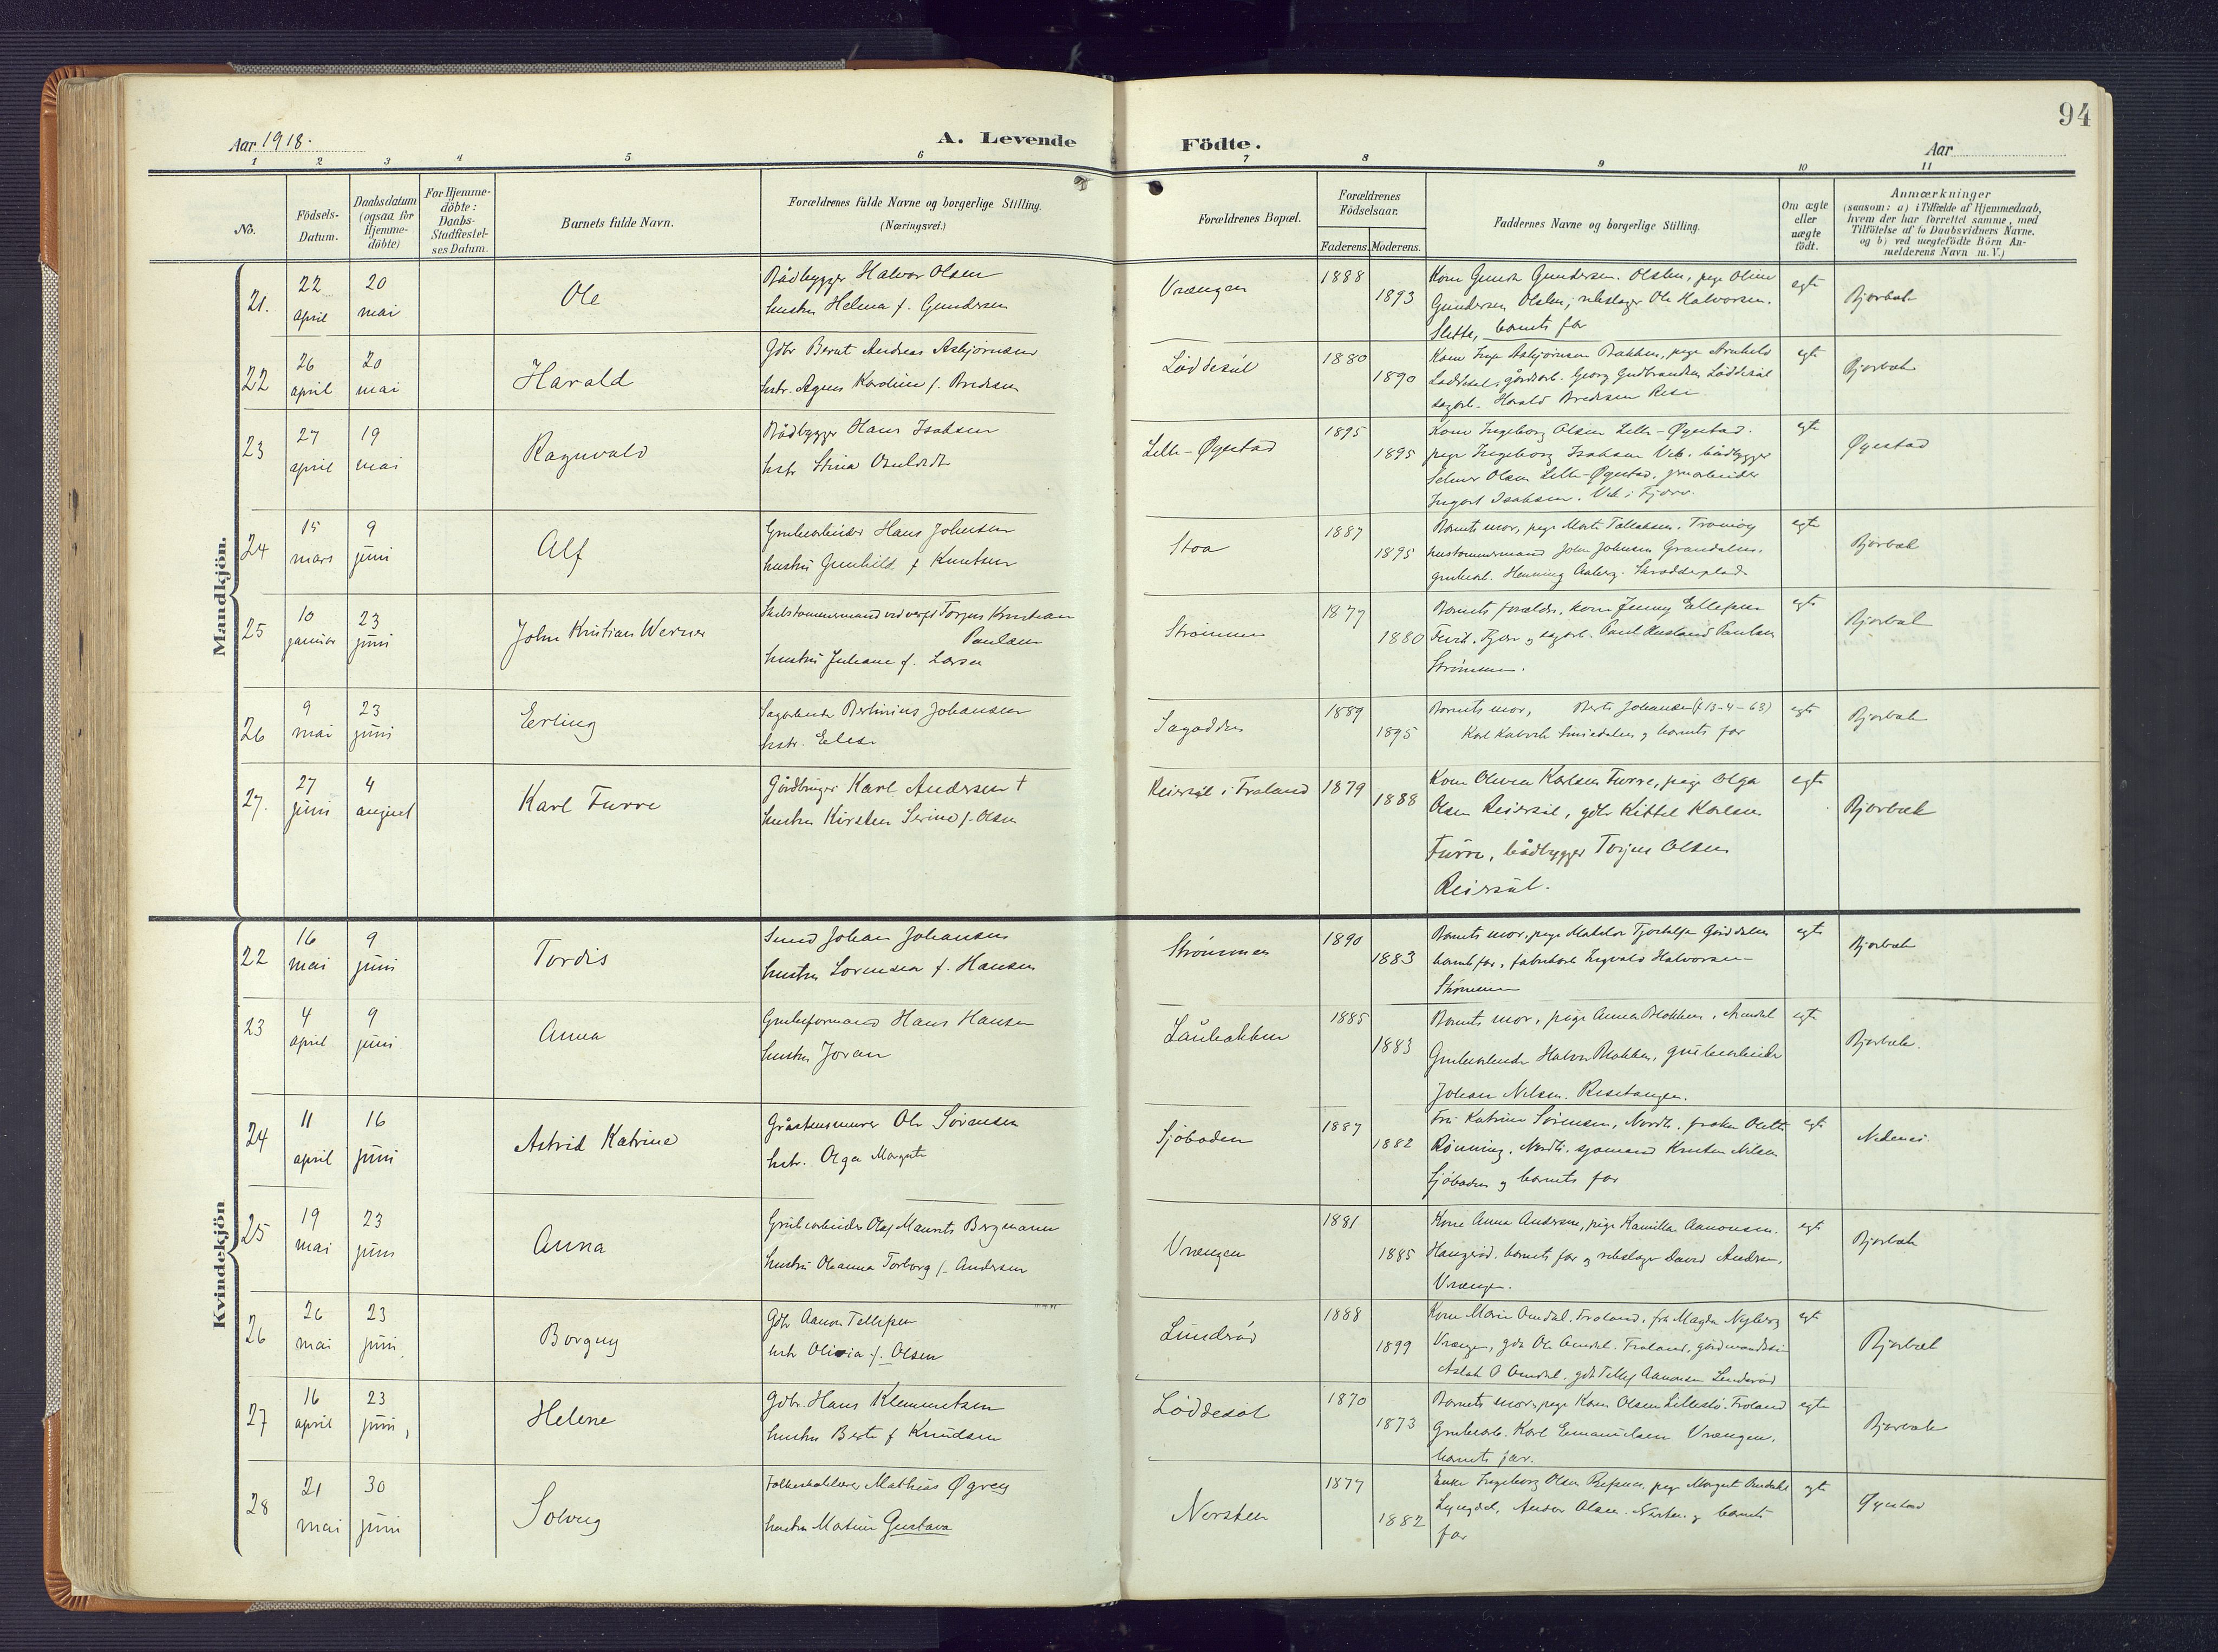 94
Aar 1918.
A. Levende
Födte.
Aar
1 2 3 4 5 6 7 8 9 10 11
No.
Födsels-
Datum.
Daabsdatum
(ogsaa for
Hjemme-
döbte)
For Hjemme-
döbte:
Daabs-
Stadfæstel-
ses Datum.
Barnets fulde Navn.
Forældrenes fulde Navne og borgerlige Stilling.
(Næringsvei.)
Forældrenes Bopæl.
Forældrenes
Födselsaar.
Faderens. Moderens.
Faddernes Navne og borgerlige Stilling.
Om ægte
eller
uægte
födt.
Anmærkninger
(saasom: a) i Tilfælde af Hjemmedaab,
hvem der har forrettet samme, med
Tilföielse af to Daabsvidners Navne.
og b) ved uægtefödte Börn An-
melderens Navn m. V.)
Mandkjön.
21.
22
april
20
mai
Ole
Bådbygger Halvor Olsen
hustru Helma f. Gundersen
Vrængen
1888
1893
Kone Gunda Gundersen. , pige Oline
Gundersen , rebslager Ole Halvorsen.
Slettå, barnets far
egte
Bjorbæk
22
26
april
20
mai
Harald
Gdbr Bernt Andreas Asbjørnsen
hstr. Agnes Karoline f. Bredesen
Løddesøl
1880
1890
Kone Inga Asbjørnsen Bakken, pige
Løddesøl, gårdarb. Georg Gudbrandsen Løddesøl
sagarb. Harald Bredesen
egte
Bjorbæk
23
27
april
19
mai
Ragnvald
Bådbygger Hans Isaksen
hstr Stina
Lille-Øgestad
1895
1895
Kone Ingeborg Olsen Lille-Øyestad.
pige Ingeborg Isaksen Vik. bådbygger
Selmer Olsen Lille-Øyestad,
Isaksen. Vik i Fjære.
egte
Øyestad
24
15
mars
9
juni
Alf
Grubearbeider Hans Johnsen
hustru Gunhild f Knutsen
Stoa
1887
1895
Barnets mor, pige Marte Tellaksen. Tromøy
hustømmermand John Johnsen Grandalen.
grubearb. Henning Aaberg.
egte
Bjorbæk
25
10
januar
23
juni
John Kristian Werner
Skibstømmermand ved verft Torjus Kristian
Paulsen
hustru Juliane f. Larsen
Strømmen
1877
1880
Barnets forældre, kone Jenny Ellefsen
Fjære og sagarb. Paul Paulsen
Strømmen.
egte
Bjorbæk
26
9
mai
23
juni
Erling
Sagarbeider Berlinius Johansen
hstr. Elise
Sagodden
1889
1895
Barnets mor, Berte Johansen (f 13-4-63)
Karl og barnets far
egte
Bjorbæk
27.
27
juni
4
august
Karl Furre
Gårdbruger Karl Andersen †
hustru Kirsten Serine f. Olsen
Reiersøl i Froland
1879
1888
Kone Olivia Karlsen Furre, pige Olga
Olsen Reiersøl, gdbr Kittel Karlsen
Furre, bådbygger Torjus Olsen
Reiersøl.
egte
Bjorbæk
Kvindekjön
22
16
mai
9
juni
Tordis
Smed Johan Johansen
hustru Lorensea f. Hansen
Strømmen
1890
1883
Barnets mor, pige
barnets far, fabrikarb Ingvald Halvorsen
Strømmen
egte
Bjorbæk
23
4
april
9
juni
Anna
Grubeformand Hans Hansen
hustru Joran
Låubakken
1885
1883
Barnets mor, pige Anna Blakken, Arendal
Grubearbeider Halvor Blakken, grubearbeider
Johan Nilsen. Risetangen.
egte
Bjorbæk.
24
11
april
16
juni
Astrid Katrine
Gråstensmurer Ole Sørensen
hstr. Olga Margrete
Sjøboden
1887
1882
Fru Katrine Sørensen, , frøken
Rønning. sjømand Kristen Nilsen
Sjøboden og barnets far
egte
Nedenes.
25
19
mai
23
juni
Anna
Grubearbeider Olaf Maurits Bergmann
hustru Oleanna Torborg f. Andersen
Vrængen
1881
1885
Kone Anna Andersen, pige Kamilla Aanonsen.
Haugrød. barnets far og rebslager David Andersen.
Vrængen.
egte
Bjorbæk
26
26
mai
23
juni
Borgny
Gdbr Aanon Tellefsen
hstr Olivia f. Olsen
Lundrød
1888
1899
Kone Marie Omdal. Froland, frk Magda Nyberg
Vrængen, gdbr Ole Omdal. Froland, gårdmandssøn
Aslak O Omdal. gdbr Tellef Aanonsen Lunderød
egte
Bjorbæk
27
16
april
23
juni,
Helene
Gdbr. Hans Klemmetsen
hustru Berte f Knudsen
Løddesøl
1870
1873
Barnets mor, pige Karen Olsen Lilleslo. Froland
Grubearb. Karl Emanuelsen Vrængen.
barnets far.
egte
Bjorbæk
28
21
mai
30
juni
Solveig
Folkeskolelærer Mathias Øgrey
hustru Martine Gustava
Nersten
1877
1882
Enke Ingeborg Olsen , pige Margit
Lyngdal, Anders Olsen. Nersten og barnets
far
egte
Øyestad